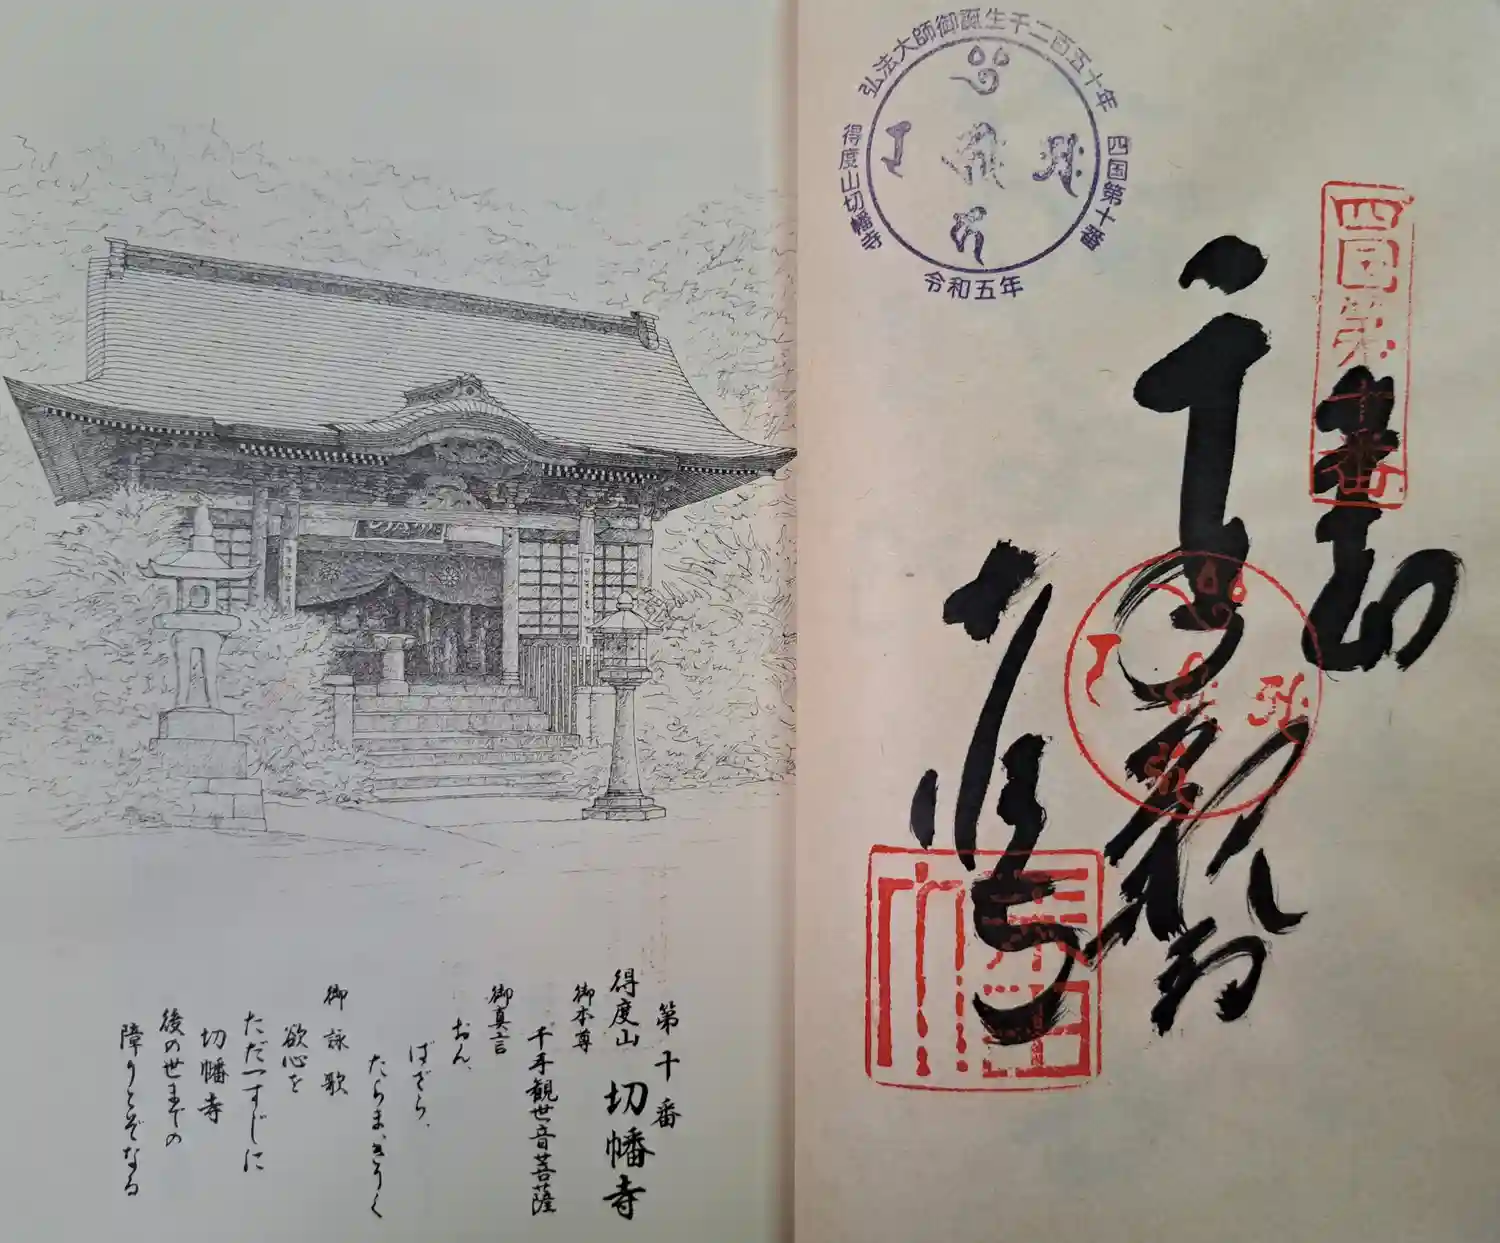 弘法大師御誕生千二百五十年
四国第十番
得度山切幡寺
令和五年
四国第十番
奉
第十番
得度山 切幡寺
御本尊
千手観世音菩薩
御真言
おん、
ばざら、
たらま、きりく
御詠歌
欲心を
ただ一すじに
切幡寺
後の世までの
障りとぞなる